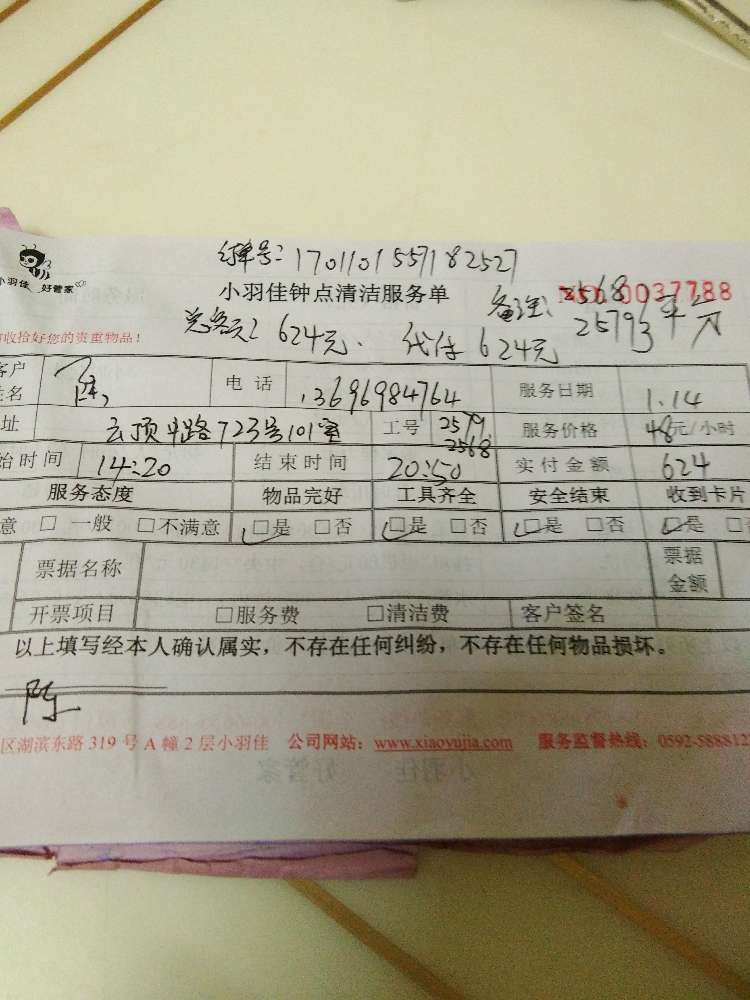 订单号：170110155718 2527
小羽佳 好管家
小羽佳钟点清洁服务单
备注：2568
No 0037788
收拾好您的贵重物品！
总客元：624元、代付624元
25793平分
客户
姓名
电话
13696984764
服务日期
1.14
址
云顶中路723号101室
工号
2579
2568
服务价格
48元/小时
始时间
14:20
结束时间
20:50
实付金额
624
服务态度 物品完好 工具齐全 安全结束 收到卡片
意 □一般 □不满意 □是 □否 □是 □否 □是 □否 □是 □
票据名称
票据
金额
开票项目 □服务费 □清洁费 客户签名
以上填写经本人确认属实，不存在任何纠纷，不存在任何物品损坏。
陈
区湖滨东路 319 号 A 幢 2 层小羽佳 公司网站：www.xiaoyujia.com 服务监督热线：0592-588812